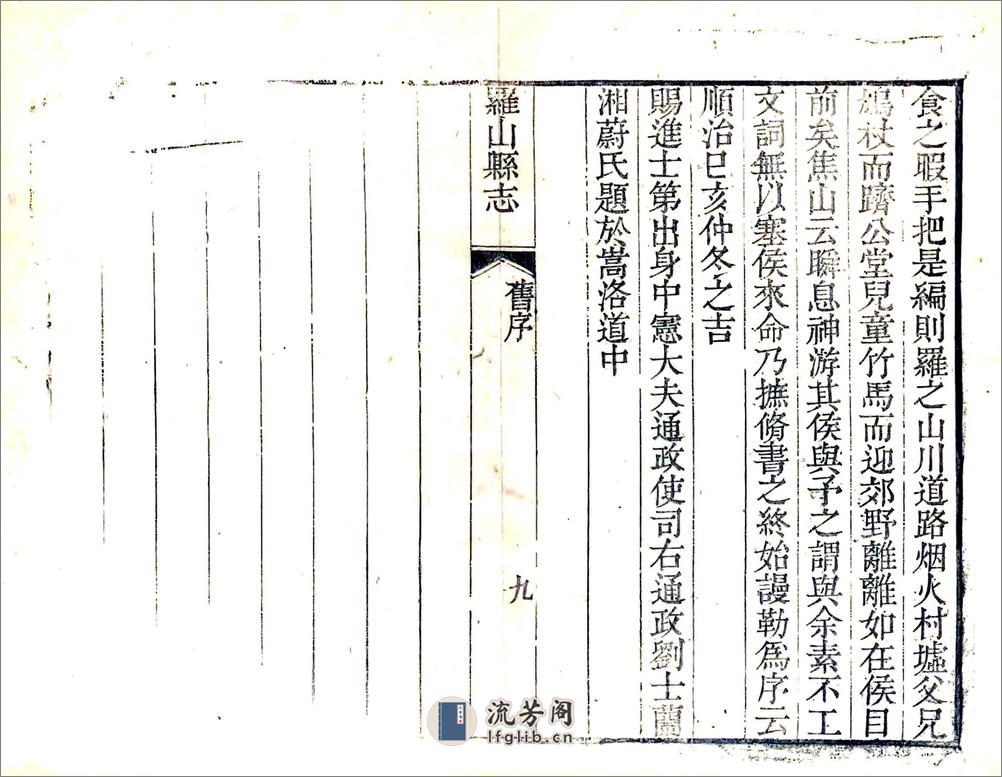 食之暇手把是編則羅之山川道路烟火村墟父兄
鳩杖而躋公堂兒童竹馬而迎郊野離離如在侯目
前矣焦山云瞬息神游其侯與予之謂與余素不工
文詞無以塞侯來命乃摭脩書之終始謾勒爲序云
順治已亥仲冬之吉
賜進士第出身中憲大夫通政使司右通政劉士蘭
湘蔚氏題於嵩洛道中
羅山縣志
舊序
九
流芳阁
lfglib.cn